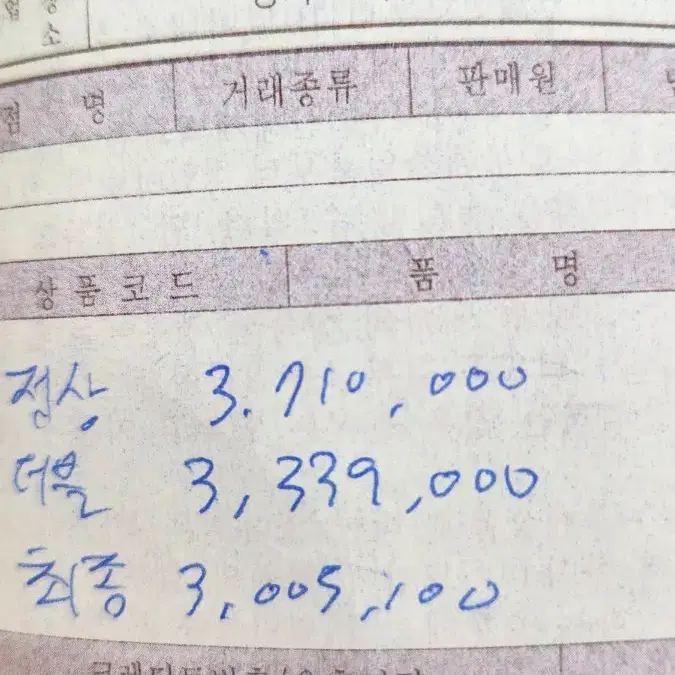 점 명 거래종류 판매원
상품코드 품 명
정상 3.710,000
더블 3,339,000
최종 3,005,100